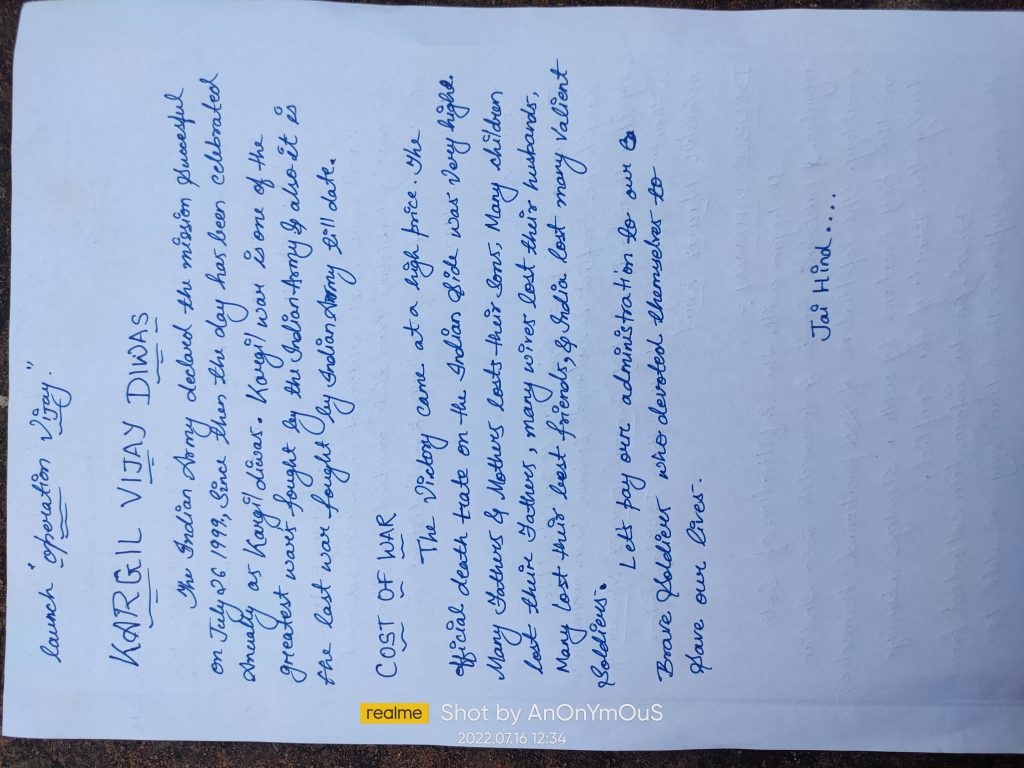 launch "operation Vijay."
KARGIL VIJAY DIWAS
The Indian Army declard the mission successful
on July 26 1999, Since then the day has been celebrated
Anually as Kargil diwas. Kargil war is one of the
greatest wars fought by the Indian Army & also it is
the last war fought by Indian Army till date.
COST OF WAR
The Victory came at a high price. The
official death trate on the Indian side was very highe.
Many Fathers & Mothers losts their sons, Many children
lost their Fathers, many wives lost their husbands,
Many lost their best friends, & India lost many Valient
Soldiers.
Let's pay our administration to our
Brave soldiers who devoted themselves to
save our lives.
Jai Hind.....
realme Shot by AnOnYmOuS
2022.07.16 12:34